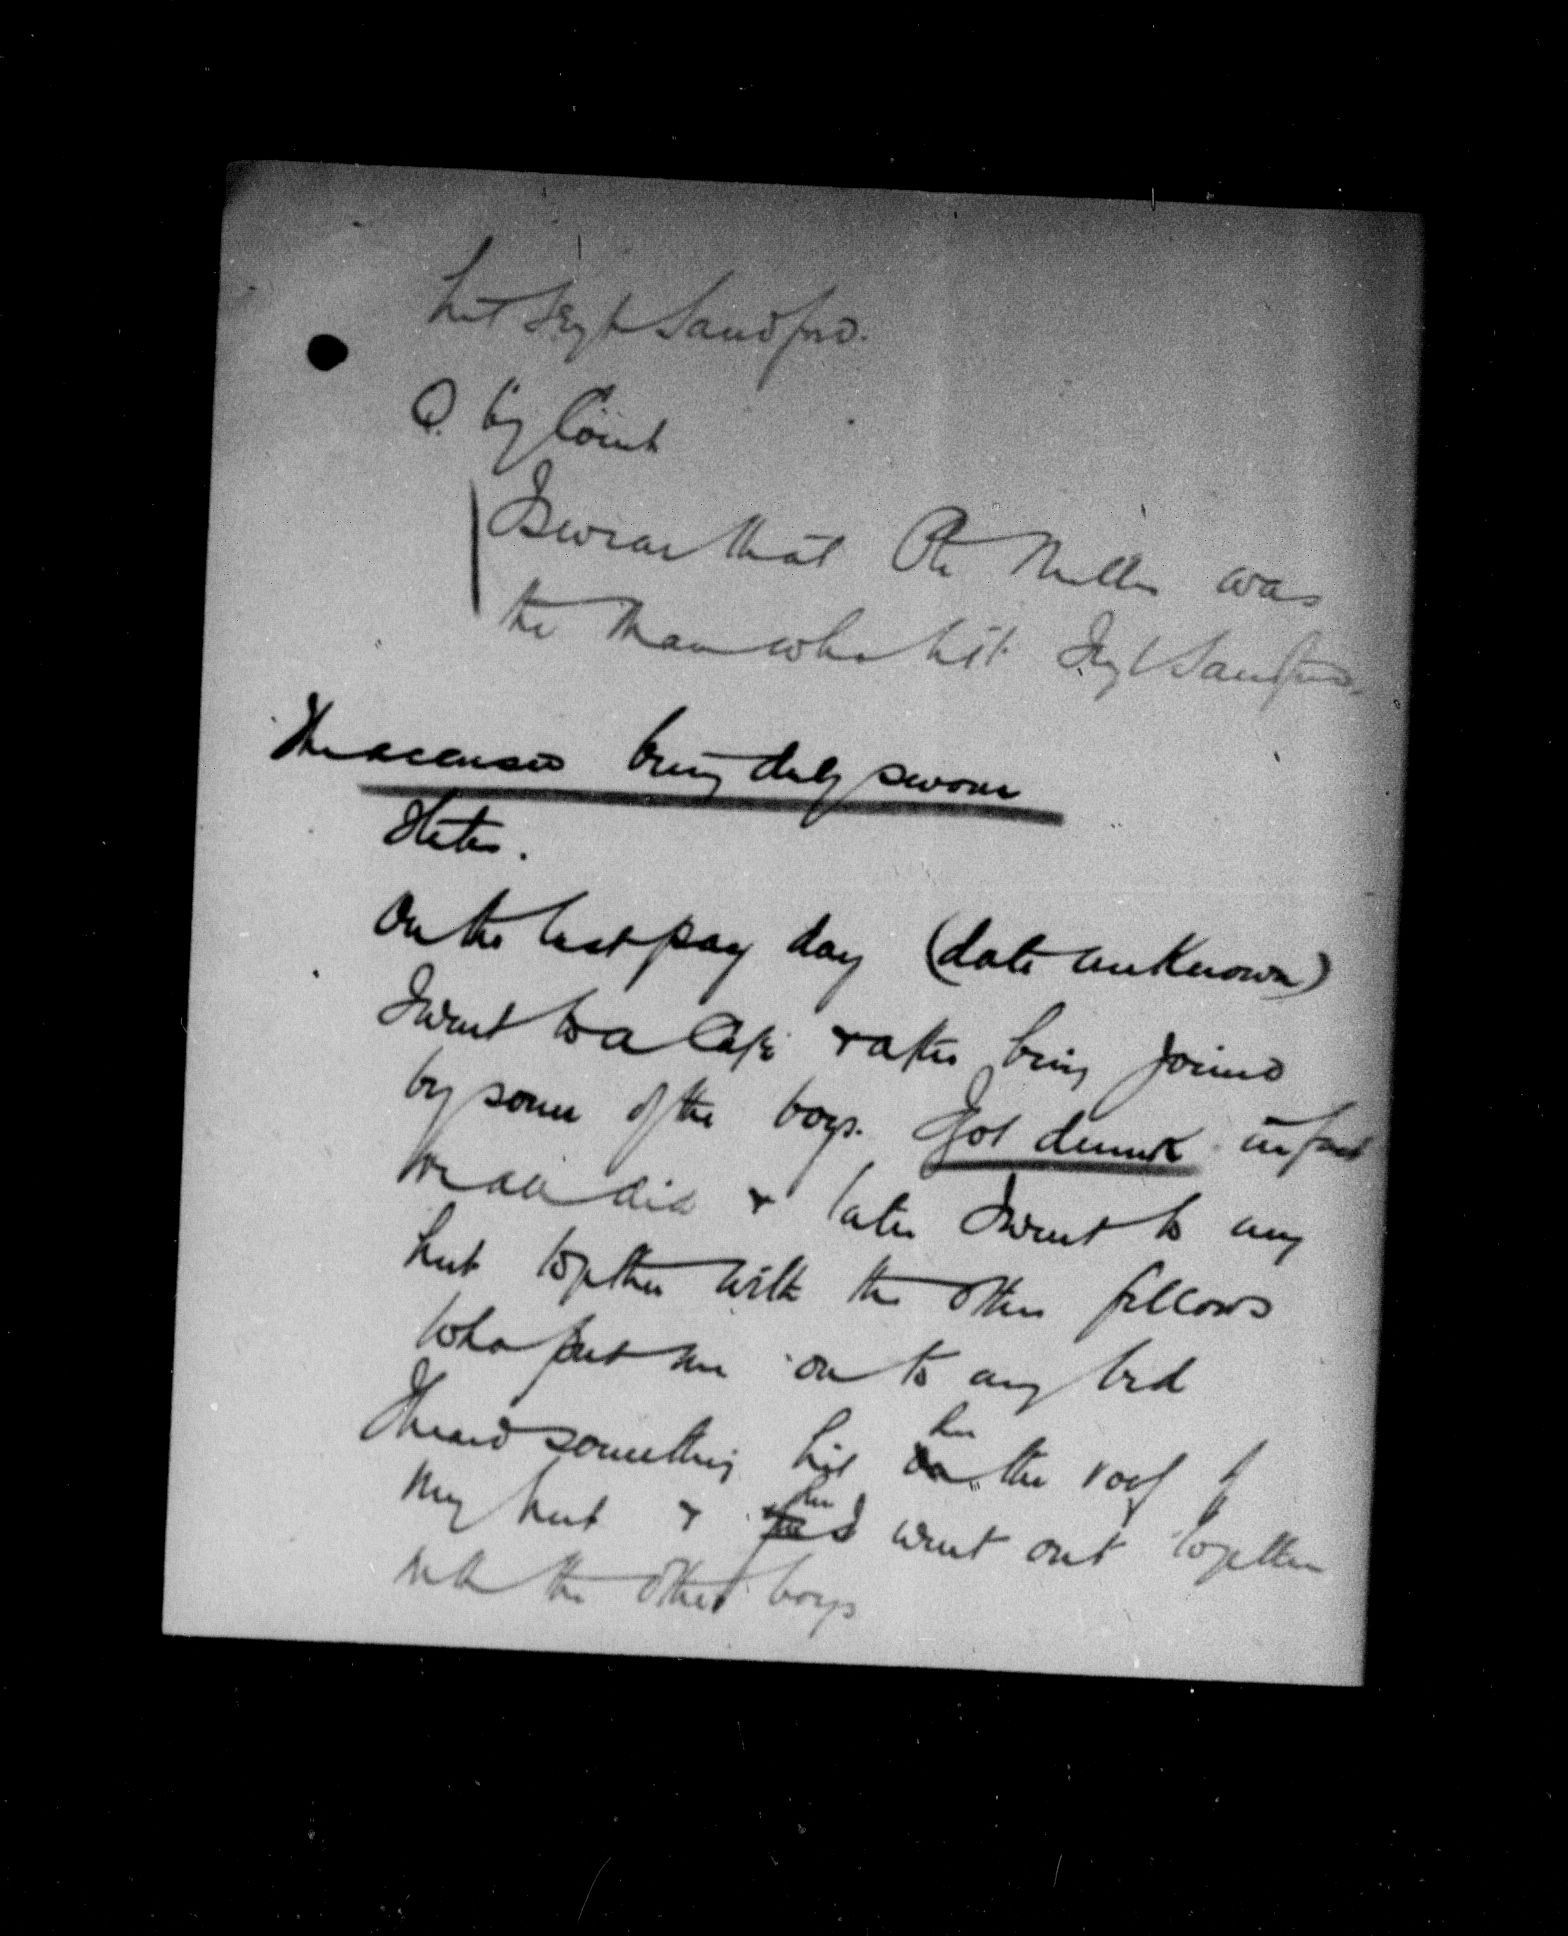 hit Sergt Sandford.
Q. by Court
I swear that Pte Muller was
the man who hit Sergt Sandford.
The accused being duly sworn
states.
On the last pay day (date unknown)
I went to a Café & after being joined
by some of the boys. I got drunk in fact
we all did & later I went to my
hut together with the other fellows
who put me on to my bed
I heard something hit on the roof of
my hut & I went out together
with the other boys